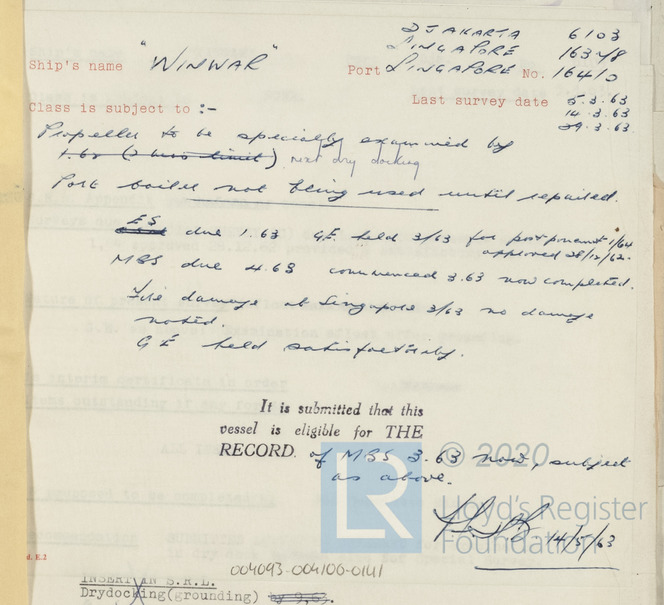 DJAKARTA 6103
SINGAPORE 16378
Ship's name "WINWAR" Port SINGAPORE No. 16410
Class is subject to :- Last survey date 5.3.63
14.3.63
29.3.63
Propeller to be specially examined by
1.63 (2 limit) next dry docking
Port boiler not being used until repaired.
ES due 1.63 G.E. held 3/63 for postponement 1/64
approved 28/12/62.
MBS due 4.63 commenced 3.63 now completed.
Fire damage at Singapore 3/63 no damage
noted.
G E held satisfactorily.
It is submitted that this
vessel is eligible for THE
RECORD. of MBS 3.63 now, subject
as above.
© 2020
LR
Lloyd's Register
Foundation
14/5/63
d. E.2
004093-004100-0141
INSERT IN S.R.L.
Drydocking(grounding) by 9.63.